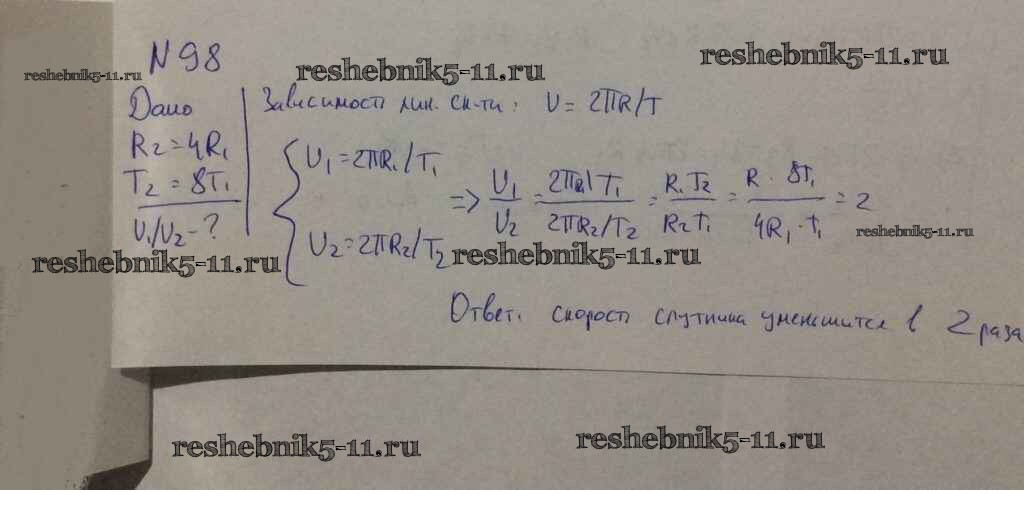 N 98
reshebnik5-11.ru
reshebnik5-11.ru
reshebnik5-11.ru
Дано
R₂=4R₁
T₂=8T₁
υ₁/υ₂-?
Зависимость лин. ск-ти: υ = 2πR/T
υ₁=2πR₁/T₁
υ₂=2πR₂/T₂
=> υ₁/υ₂ = (2πR₁/T₁)/(2πR₂/T₂) = R₁T₂/R₂T₁ = R · 8T₁/4R₁ · T₁ = 2
reshebnik5-11.ru
reshebnik5-11.ru
reshebnik5-11.ru
Ответ: скорость спутника уменьшится в 2 раза
reshebnik5-11.ru
reshebnik5-11.ru